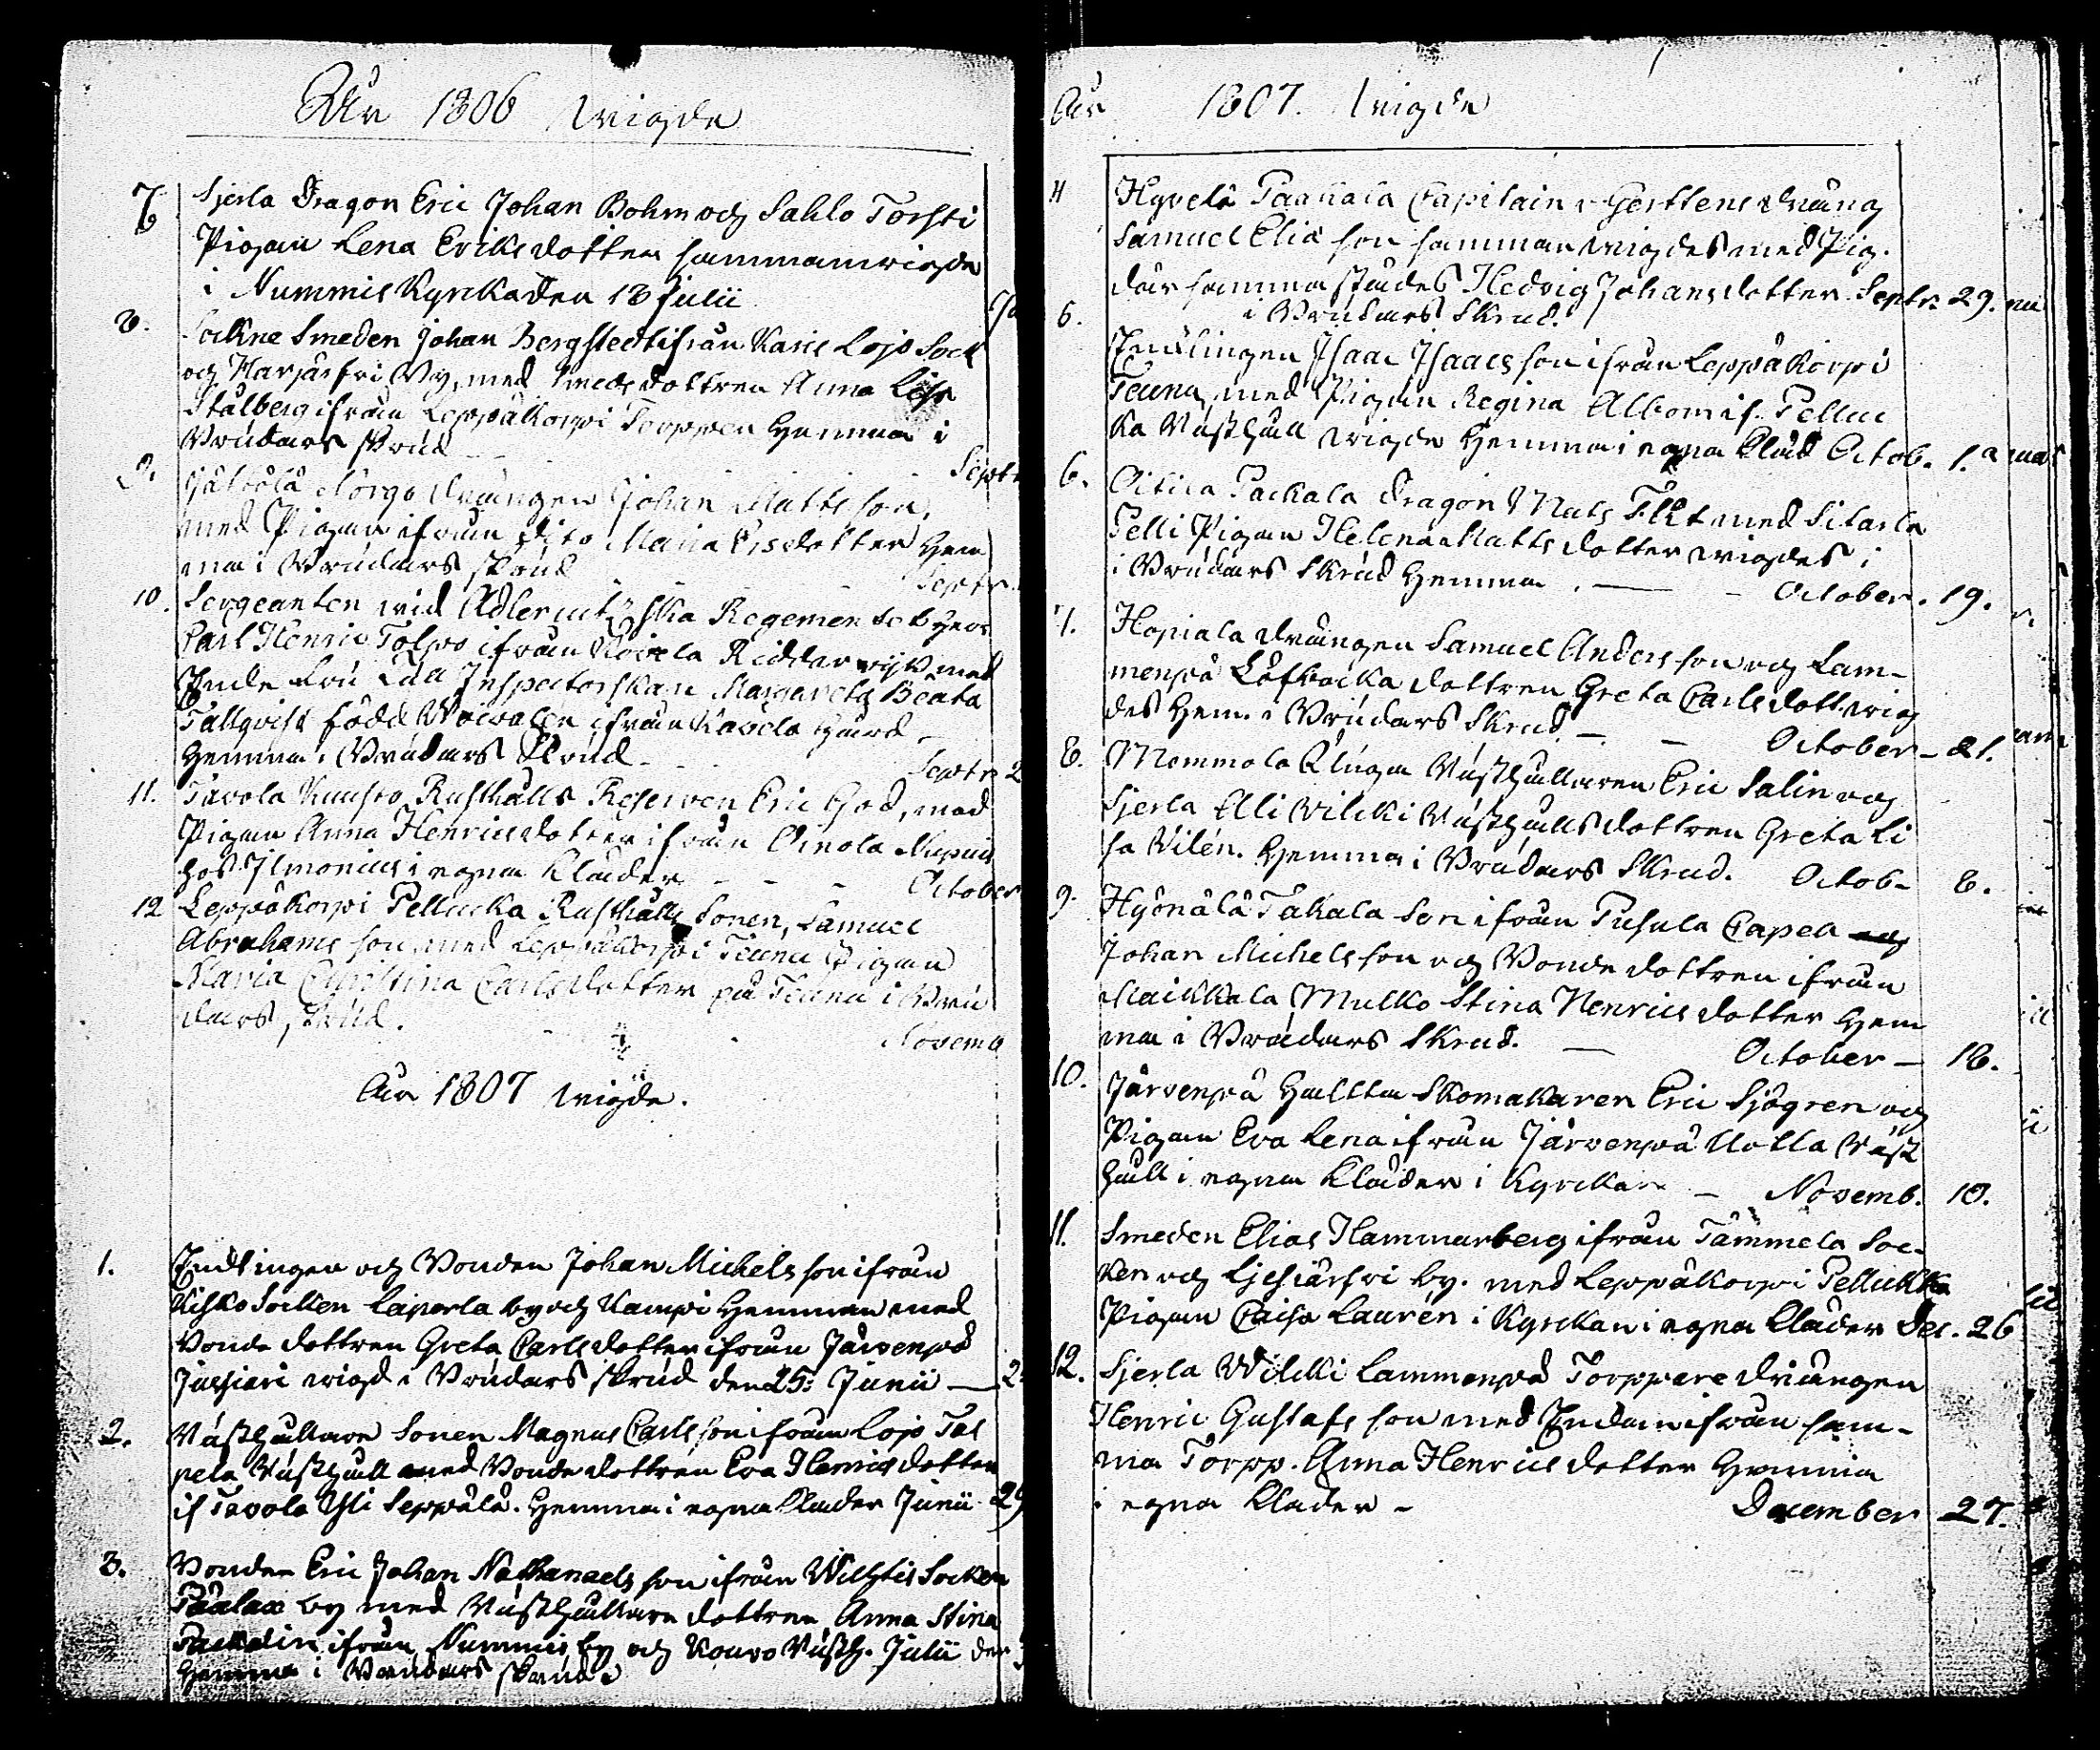 Åhr 1806 wigde
7. Sjerla Dragon Eric Johan Bohm och Sahlo Torsti
Pigan Lena Eriksdotter sammanwigde
i Nummis Kyrckaden 13 Julii
8. Sockne Smeden Johan Bergstedt ifrån Karis Lojo Sock
och Harjärfvi By, med Smeds dottren Anna Lisa
Stålberg ifrån Leppäkorpi Torppen hemma i
Brudars skrud
Septr
9. drängen Johan Mattsson,
med Pigan ifrån dito Maria Ersdotter hem
ma i Brudars skrud
Septr.
10. Sergeanten wid Adlercreutzska Regementet Herr
Carl Henric Tolpo ifrån Kovela Ridderwijk med
Enke Fru Inspectorskan Margareta Beata
Tallqvist född Weivalén ifrån Kovela Gård
hemma i Brudars Skrud
Septr 2
11. Tavola Knuto Rusthålls Reserven Eric God, med
Pigan Anna Henricsdotter ifrån Oinola
hos Ilmonius i egna Kläder - - - October
12 Leppäkorpi Pellucka Rusthålls Sonen, Samuel
Abrahamsson, med Leppäkorpi Teeru Pigan
Maria Christina Carlsdotter på Teeru i Bru
dars, skrud.
Novemb
Åhr 1807 wigde.
1. Änklingen och Bonden Johan Michelsson ifrån
Kisko Socken Laperla by och Kampi Hemman med
Bonde dottren Greta Carlsdotter ifrån Järvenpä
Jussiari wigd i Brudars skrud den 25: Junii — 2
2. Rusthållare Sonen Magnus Carlsson ifrån Lojo Tal
pela Rusthåll med Bonde dottren Eva Henricsdotter
if Tavola Yli Seppälä. Hemma i egna Kläder Junii 29
3. Bonden Eric Johan Nathanaelsson ifrån Wichtis Socken
by med Rusthållare dottren Anna Stina
Packalin ifrån Nummis by och Kouvo Rusth. Julii den
Hemma i Brudars skrud
Åhr 1807. wigde
4 Hyvelä Paakala Capitain Gerttens dräng
Samuel Eliasson sammanwigdes med Pig.
därsammastädes Hedvig Johansdotter. Septr. 29.
i Brudars Skrud.
5. Änklingen Isaac Isaacsson ifrån Leppäkorpi
Teeru, med Pigan Regina Albom if. Pellu
ka Rusthåll wigde Hemma i egna Kläd Octob. 1.
6. Oitila Packala Dragon Mats Flkt med Sitarla
Pelli Pigan Helena Mattsdotter wigdes i
i Brudars Skrud hemma. — - October. 19.
7. Hopiala drängen Samuel Andersson och Lam-
menpä Löfbacka dottren Greta Carlsdott. wig
des Hem. i Brudars Skrud — - October - 21.
8. Mommola Rusthållaren Eric Salin och
Sjerla Alli Vilcki Rusthålls dottren Greta Li
sa Vilén. Hemma i Brudars Skrud. Octob- 8.
9. Hyönälä Takala Son ifrån Pusula Capell
Johan Michelsson och Bonde dottren ifrån
Maikkala Mulko Stina Henricsdotter Hem
ma i Brudars Skrud. — October - 18.
10. Järvenpä Skomakaren Eric Sjögren och
Pigan Eva Lena ifrån Järvenpä Uotila Rust
håll i egna Kläder i Kyrckan - Novemb. 10.
11. Smeden Elias Hammarberg ifrån Tammela Soc-
ken och Ljesjärfvi by. med Leppäkorpi Pellukka
Pigan Caisa Lauren i Kyrckan i egna Kläder Dec. 26
12. Sjerla Wilcki Lammenpä Torppare drängen
Henric Gustafsson med Enkan ifrån sam-
ma Torpp. Anna Henricsdotter Hemma
i egna Kläder - December 27.